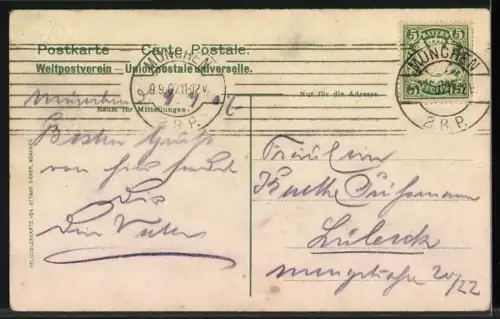 Postkarte — Carte Postale.
Weltpostverein — Union postale universelle.
MÜNCHEN
2 B.P.
BAYERN
5 5
MÜNCHEN
2 B.P.
München 9. 9. 07
Raum für Mitteilungen.
Nur für die Adresse.
Besten Gruß
von hier sendet
Dir
Dein Vater
Fräulein
Käthe
Lübeck
20/22